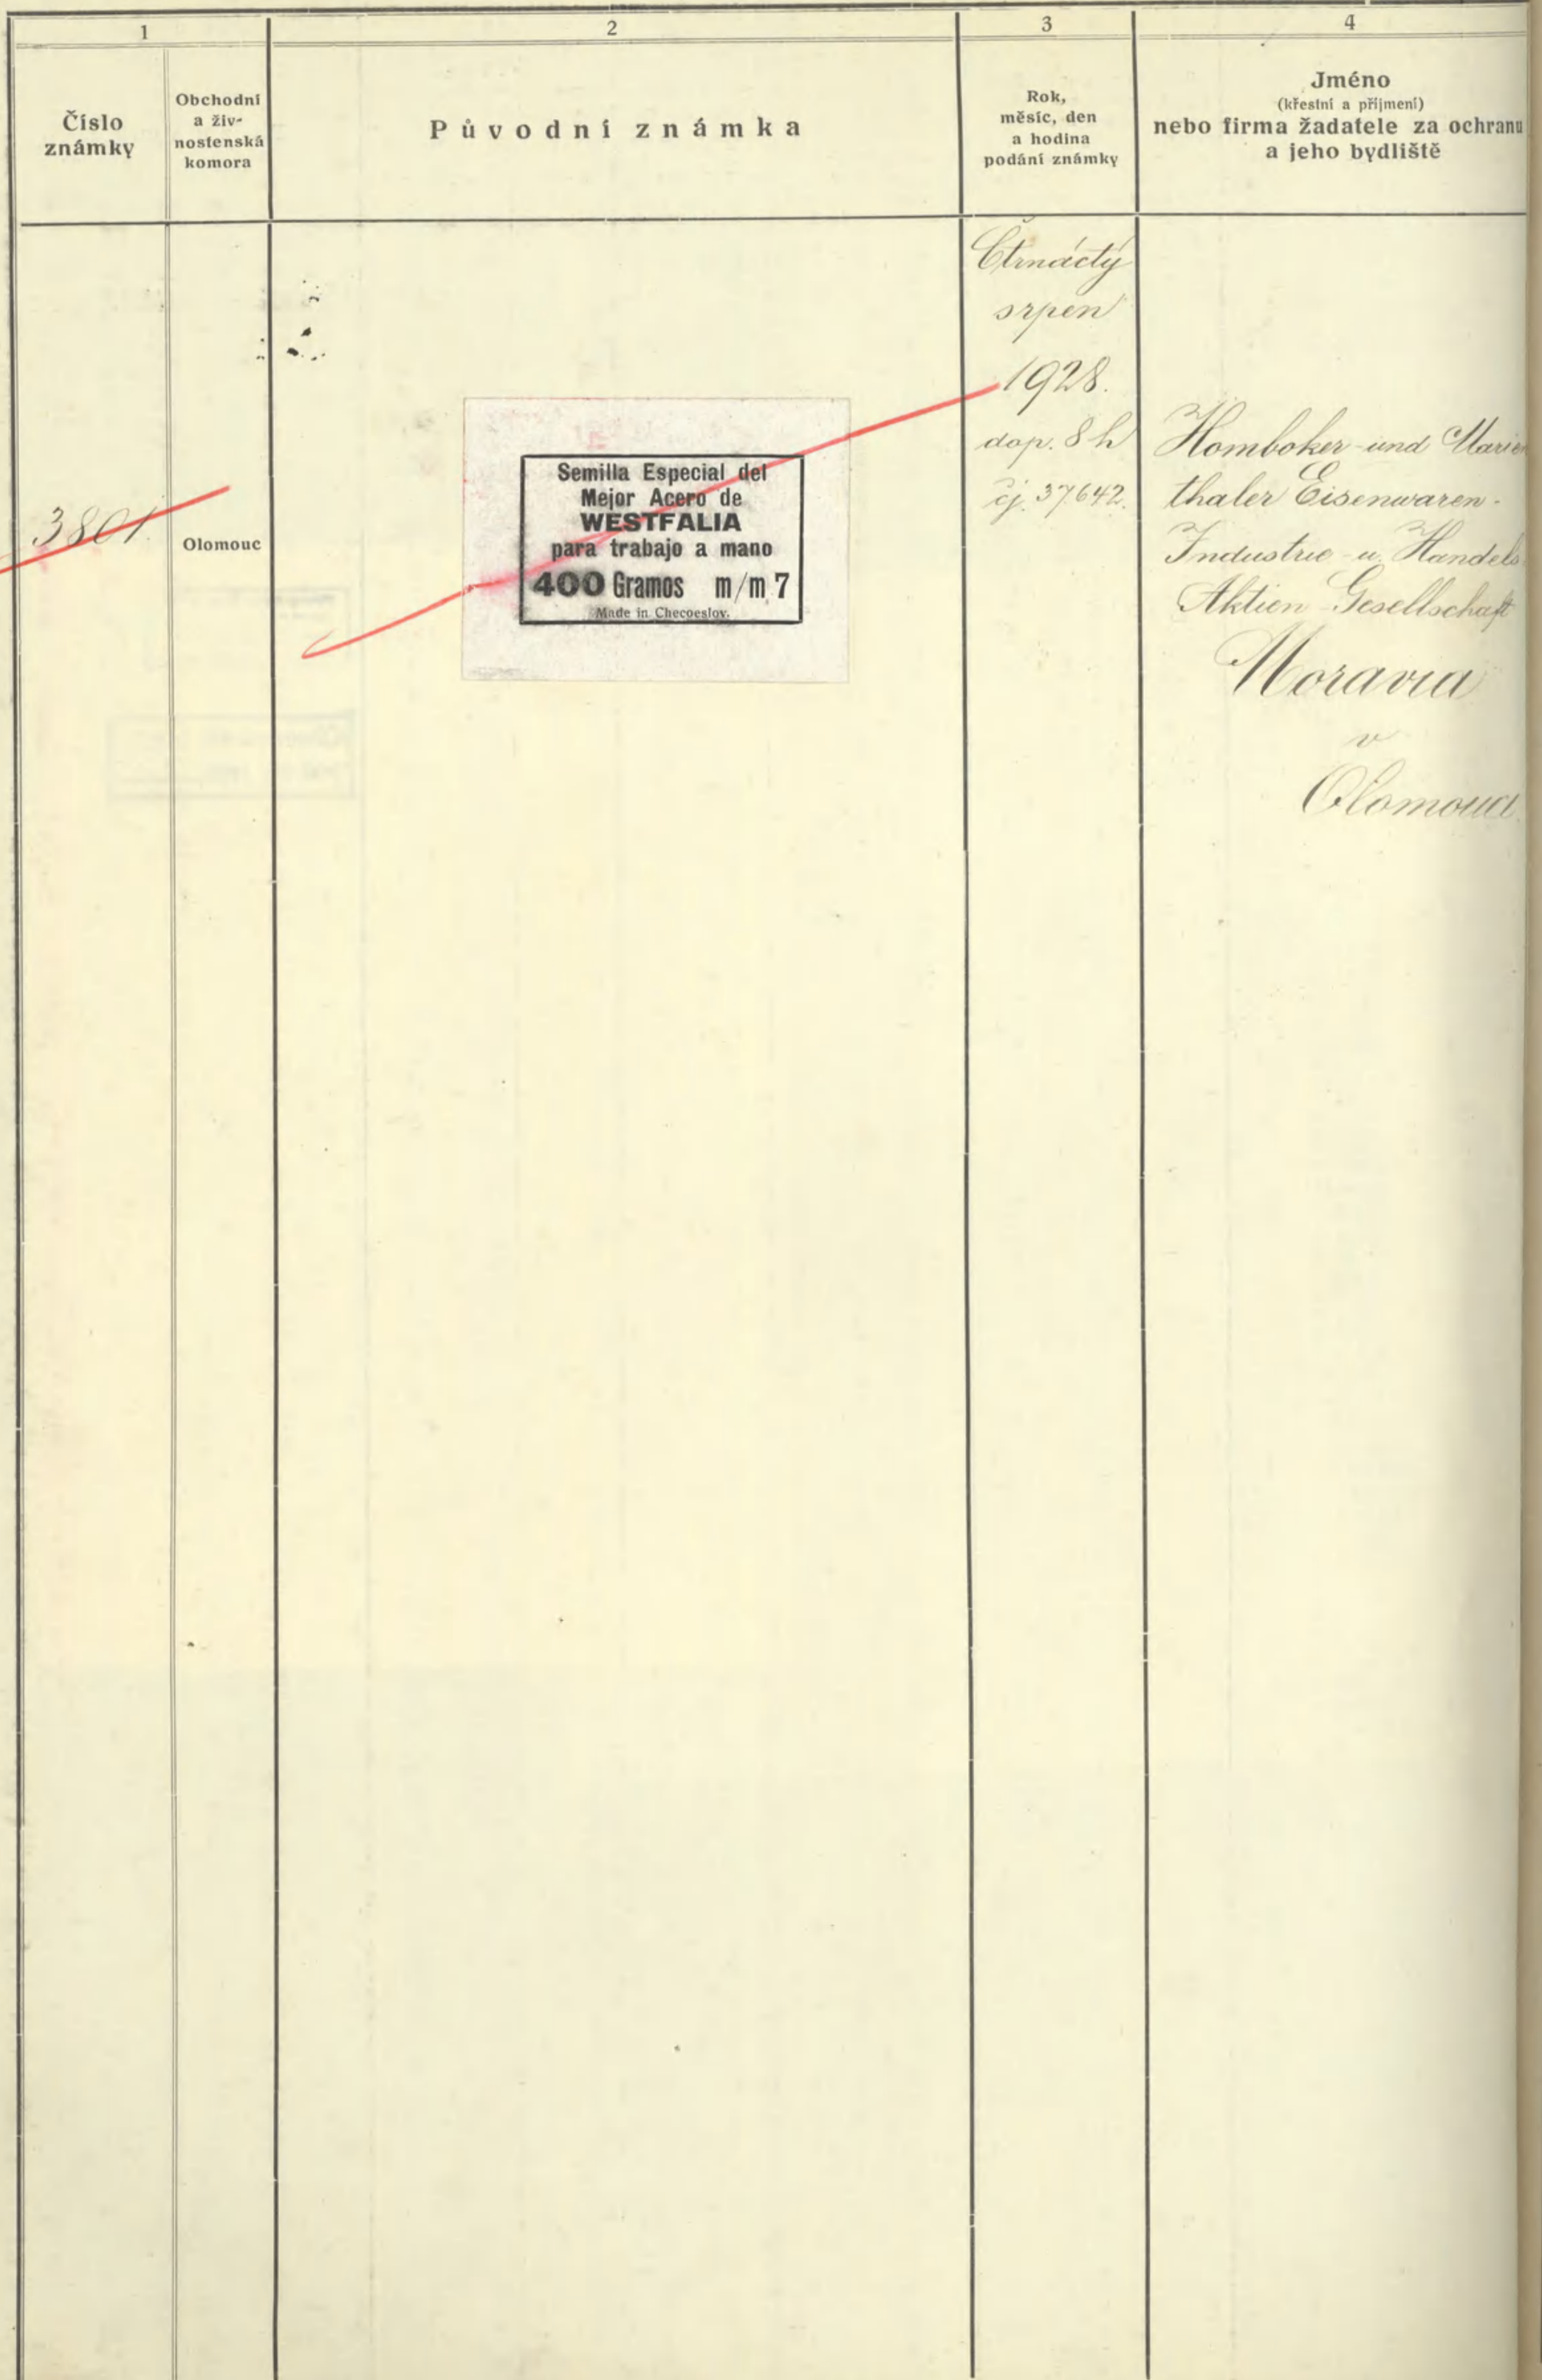 1
2
3
4
Číslo
známky
Obchodní
a živ-
nostenská
komora
Původní známka
Rok,
měsíc, den
a hodina
podání známky
Jméno
(křestní a příjmení)
nebo firma žadatele za ochranu
a jeho bydliště
3801.
Olomouc
Semilla Especial del
Mejor Acero de
WESTFALIA
para trabajo a mano
400 Gramos m/m 7
Made in Checoeslov.
Čtrnáctý
srpen
1928.
dop. 8 h
čj. 37.642.
Homboker-und Marien
thaler Eisenwaren-
Industrie-u. Handels
Aktien-Gesellschaft
Moravia
v
Olomouci.